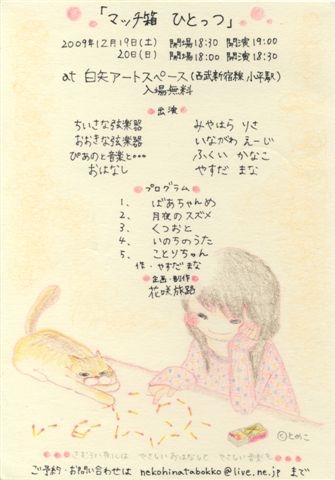 「マッチ箱 ひとっつ」
2009年12月19日(土) 開場18:30 開演19:00
20日(日) 開場18:00 開演18:30
at 白矢アートスペース(西武新宿線 小平駅)
入場無料
出演
ちいさな弦楽器 みやはら りさ
おおきな弦楽器 いながわ えーじ
ぴあのと音楽と・・・ ふくい かなこ
おはなし やすだ まな
プログラム
1. ばあちゃんめ
2. 月夜のスズメ
3. くつおと
4. いのちのうた
5. ことりちゃん
作・やすだ まな
企画・制作
花咲旅路
©とめこ
さむふい夜には やさしいおはなしと やさしい音楽を
ご予約・お問い合わせは nekohinatabokko@live.ne.jp まで